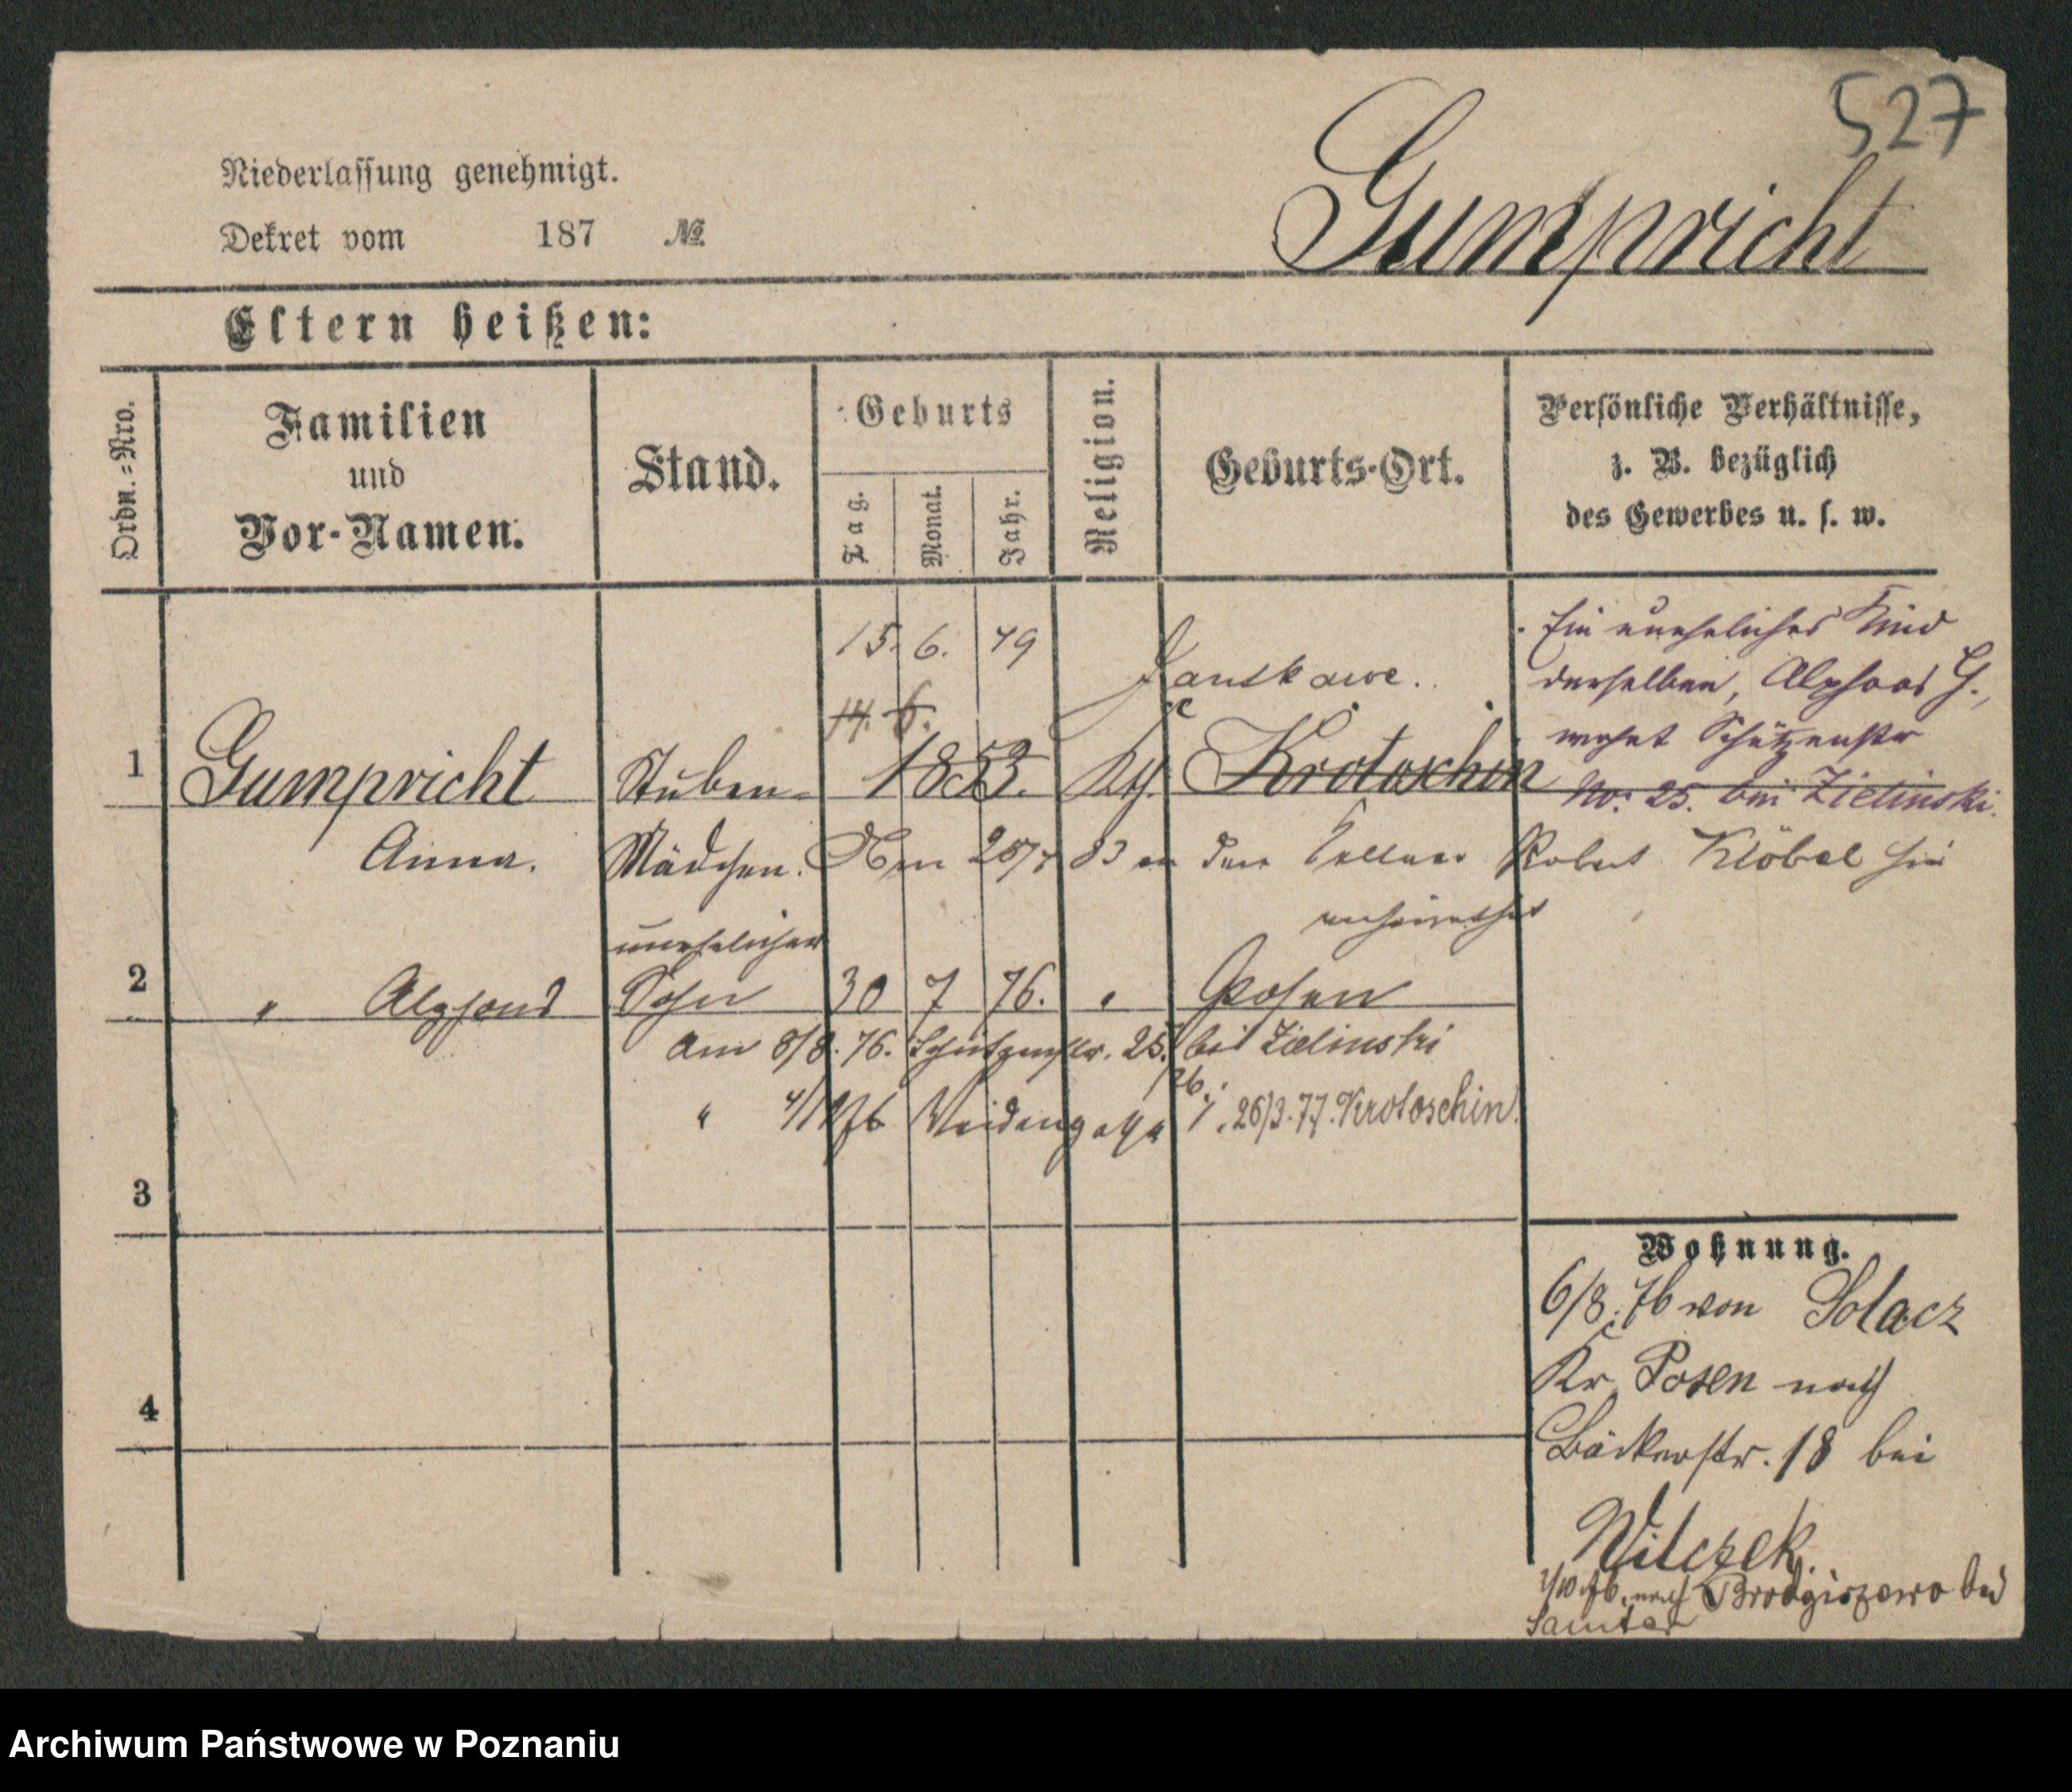 527
Niederlassung genehmigt.
Gumpricht
Dekret vom 187 №
Eltern heißen:
Ordn.=Nro.
Familien
und
Vor-Namen.
Stand.
Geburts
Tag.
Monat.
Jahr.
Religion.
Geburts-Ort.
Persönliche Verhältnisse,
z. B. bezüglich
des Gewerbes u. s. w.
15. 6. 49
Jankawe.
14. 6.
Ein uneheliches Kind
derselben, Alphons G.,
wohnt Schützenstr
No: 25. bei Zielinski.
1 Gumpricht Stuben- 1853. Kth. Krotoschin
Anna. Mädchen.
Am 25/7 83 an den Kellner Robert Klöbel hier
verheirathet
unehelicher
2 " Alphons Sohn 30 7 76. " Posen
Am 8/8. 76. Schützenstr. 25. bei Zielinski
" 76 Weidengasse 26/3. 77. Krotoschin.
3
4
Wohnung.
6/8. 76 von Solacz
Kr Posen nach
Bäckerstr. 18 bei
Wilczek.
/10 76. nach Brodziszewo bei
Samter
Archiwum Państwowe w Poznaniu